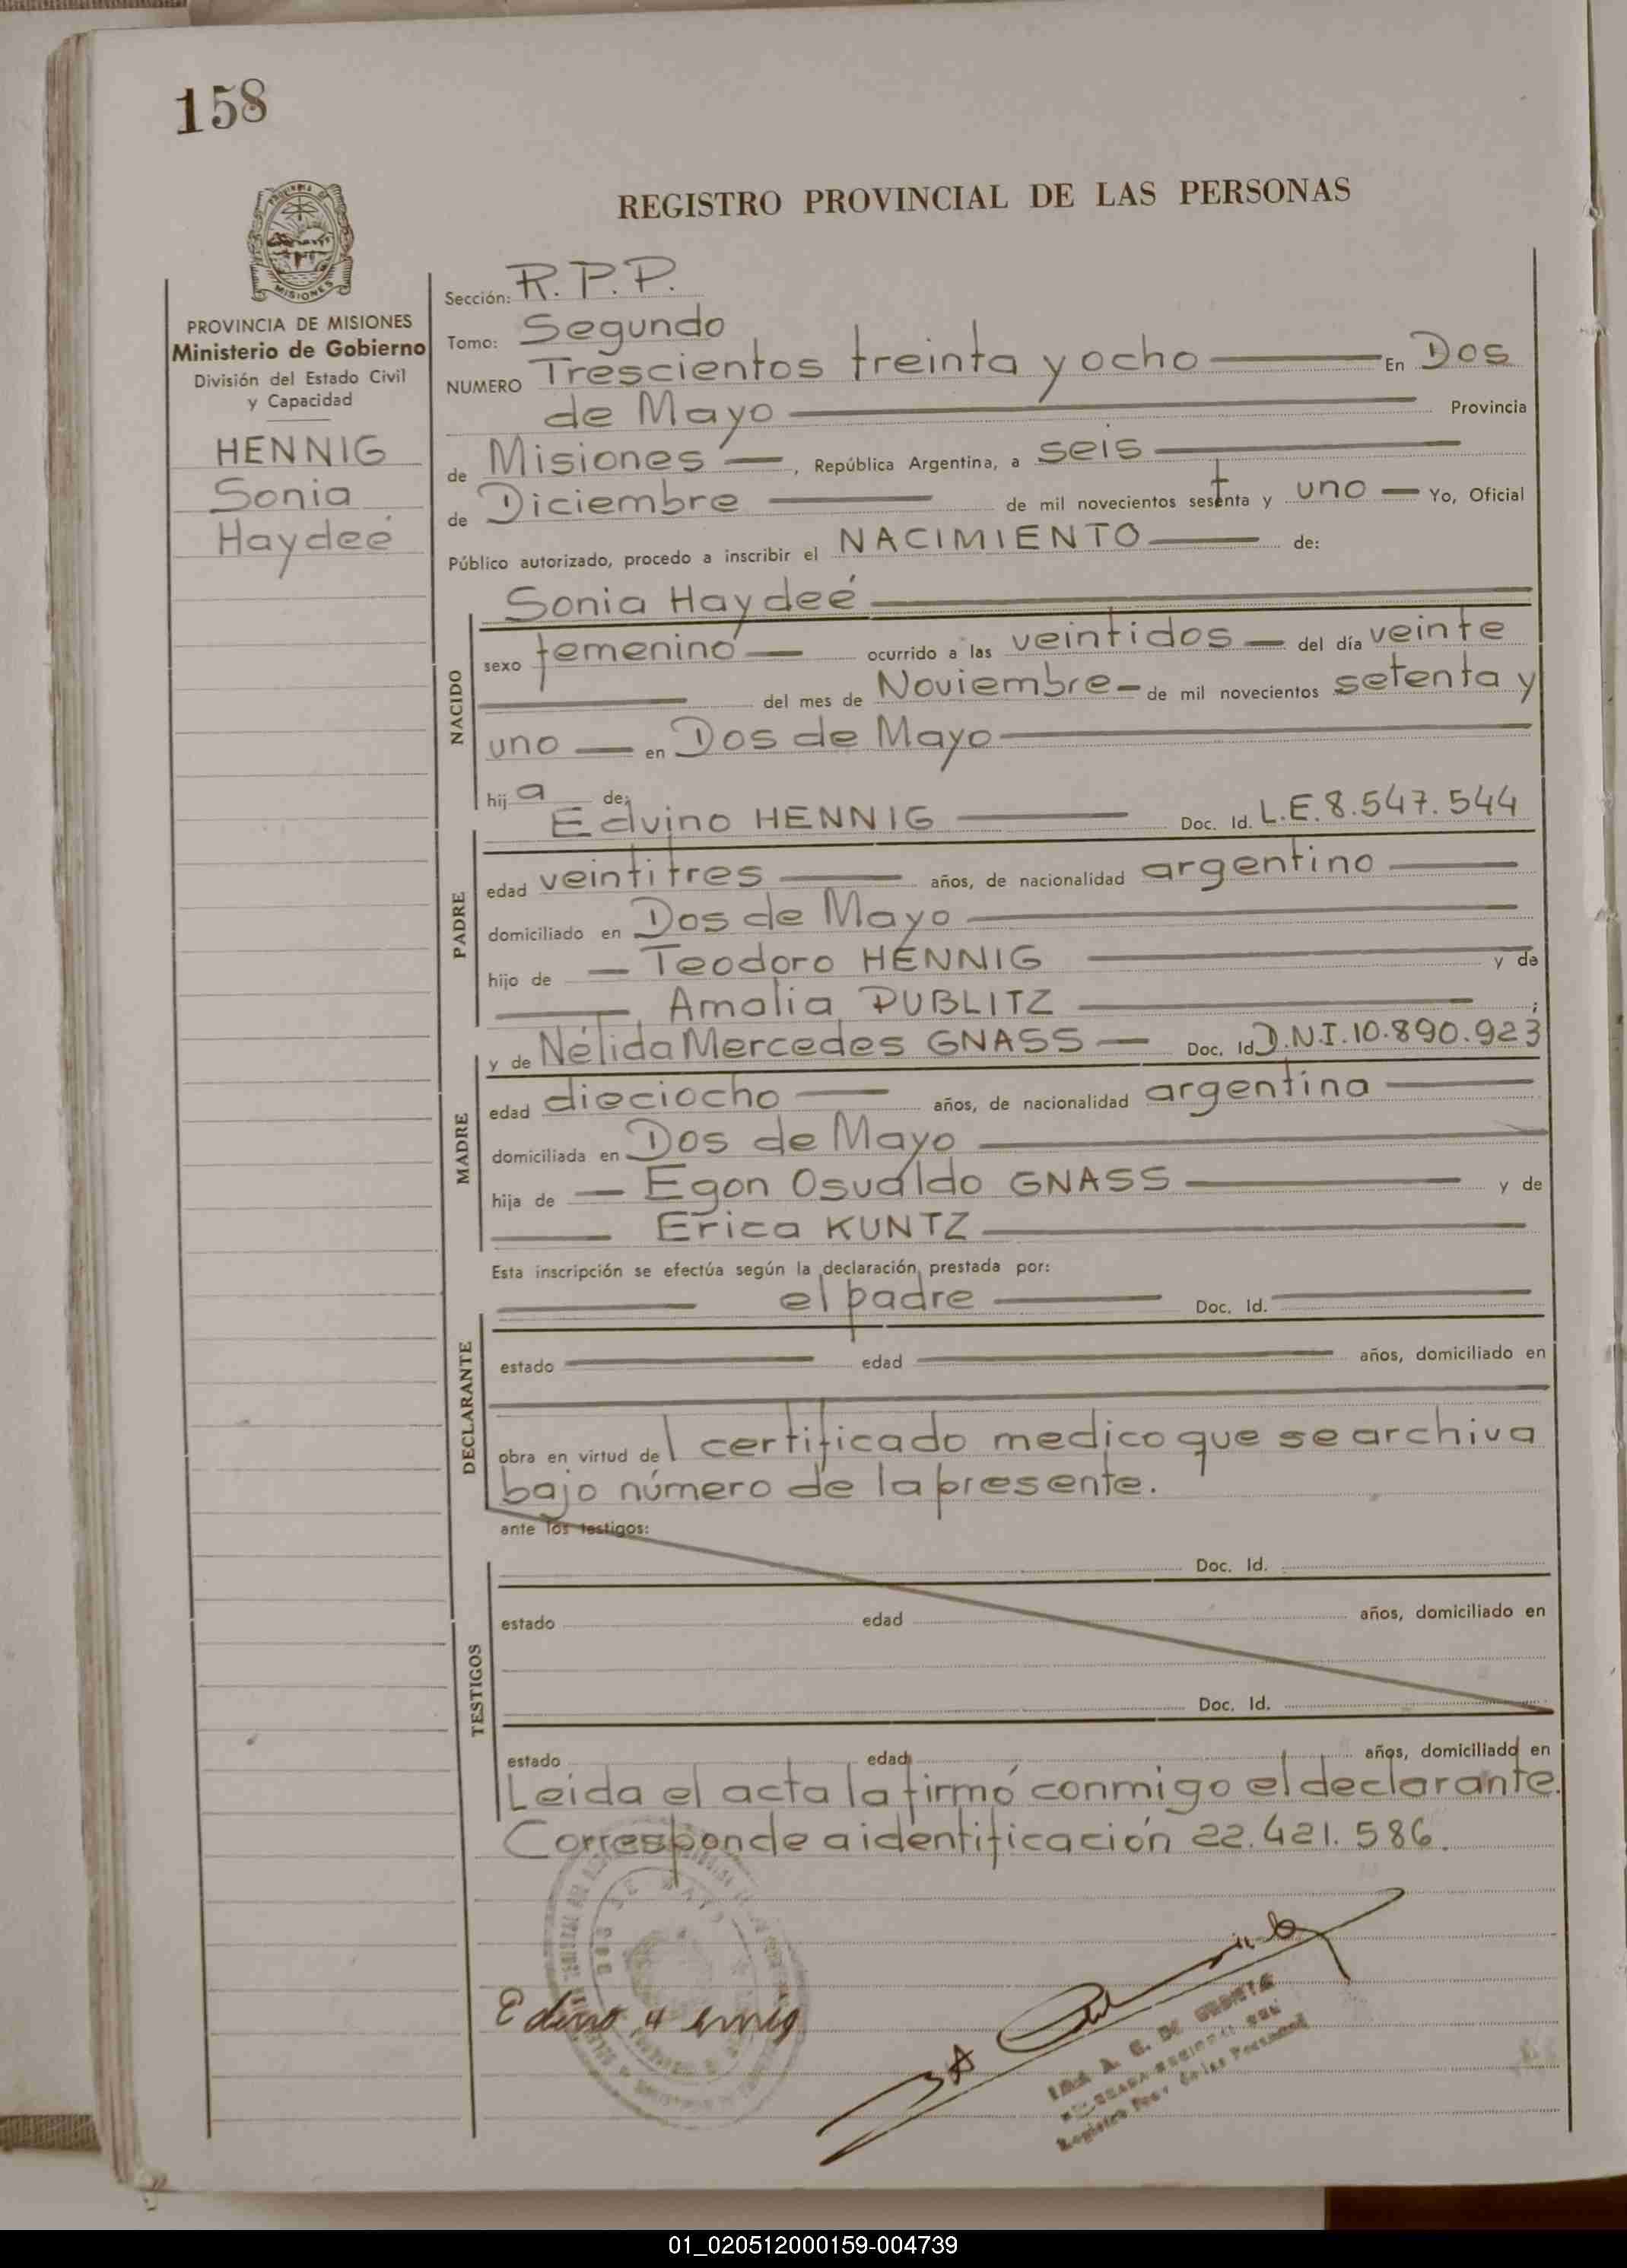 158
REGISTRO PROVINCIAL DE LAS PERSONAS
PROVINCIA DE
MISIONES
PROVINCIA DE MISIONES
Ministerio de Gobierno
División del Estado Civil
y Capacidad
HENNIG
Sonia
Haydeé
Sección: R.P.P.
Tomo: Segundo
NUMERO Trescientos treinta y ocho En Dos
de Mayo Provincia
de Misiones, República Argentina, a seis
de Diciembre de mil novecientos setenta y uno Yo, Oficial
Público autorizado, procedo a inscribir el NACIMIENTO de:
Sonia Haydeé
NACIDO
sexo femenino ocurrido a las veintidos del día veinte
del mes de Noviembre de mil novecientos setenta y
uno en Dos de Mayo
hija de:
Edvino HENNIG Doc. Id. L.E. 8.547.544
PADRE
edad veintitres años, de nacionalidad argentino
domiciliado en Dos de Mayo
hijo de Teodoro HENNIG y de
Amalia PUBLITZ ;
y de Nélida Mercedes GNASS Doc. Id D.N.I. 10.890.923
MADRE
edad dieciocho años, de nacionalidad argentina
domiciliada en Dos de Mayo
hija de Egon Osvaldo GNASS y de
Erica KUNTZ
Esta inscripción se efectúa según la declaración prestada por:
el padre Doc. Id.
DECLARANTE
estado edad años, domiciliado en
obra en virtud del certificado medico que se archiva
bajo número de la presente.
ante los testigos:
Doc. Id.
TESTIGOS
estado edad años, domiciliado en
Doc. Id.
estado edad años, domiciliado en
Leida el acta la firmó conmigo el declarante.
Corresponde a identificación 22.421.586.
DOS DE MAYO
01_020512000159-004739